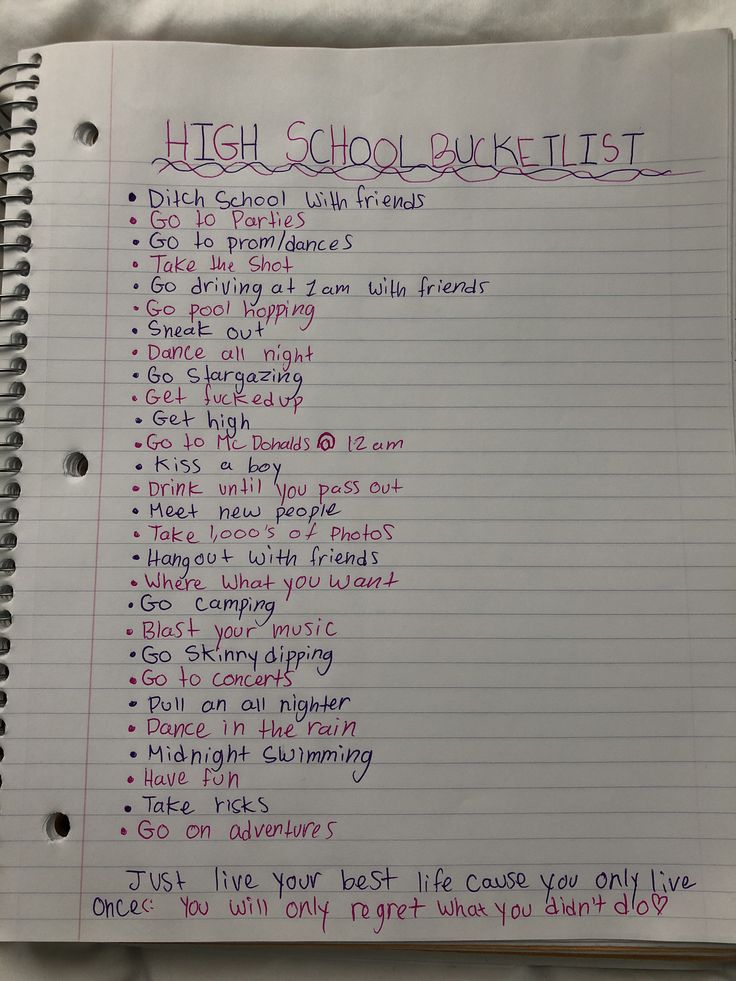 HIGH SCHOOL BUCKETLIST
• Ditch School with friends
• Go to Parties
• Go to prom/dances
• Take the Shot
• Go driving at 1am with friends
• Go pool hopping
• Sneak out
• Dance all night
• Go Stargazing
• Get fucked up
• Get high
• Go to McDonalds @ 12 am
• Kiss a boy
• Drink until you pass out
• Meet new people
• Take 1,000's of Photos
• Hangout with friends
• Where what you want
• Go camping
• Blast your music
• Go Skinny dipping
• Go to concerts
• Pull an all nighter
• Dance in the rain
• Midnight Swimming
• Have fun
• Take risks
• Go on adventures
Just live your best life cause you only live
once(: You will only regret what you didn't do♡